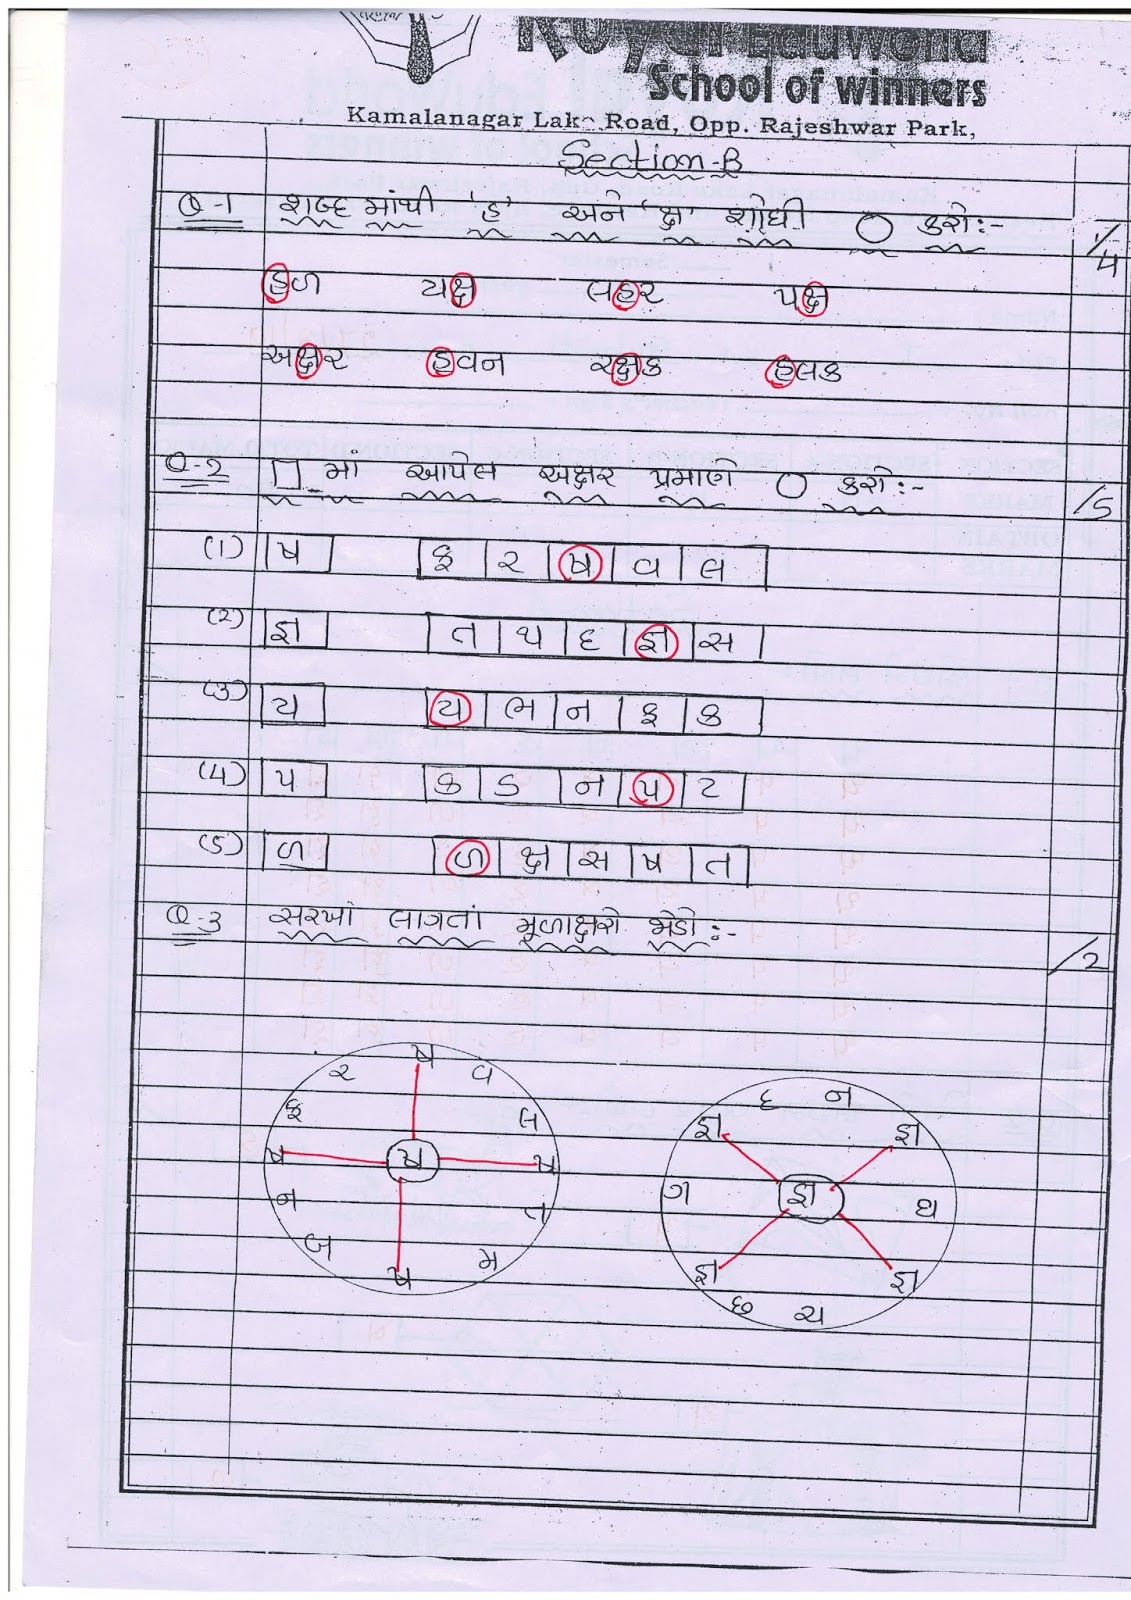 Royal Eduworld
School of winners
Kamalanagar Lake Road, Opp. Rajeshwar Park,
Section-B
Q-1 શબ્દ માંથી 'હ' અને 'ક્ષ' શોધી ○ કરો:- /4
હળ યક્ષ લહર પક્ષ
અક્ષર હવન રક્ષક હલક
Q-2 □ માં આપેલ અક્ષર પ્રમાણે ○ કરો:- /5
(1) ષ ફ ર ષ વ લ
(2) જ્ઞ ત થ દ જ્ઞ સ
(3) ય ય ભ ન ફ ક
(4) પ ક ડ ન પ ટ
(5) ળ ળ ક્ષ સ ષ ત
Q-3 સરખાં લાગતાં મૂળાક્ષરો જોડો:- /2
ષ
ર વ
ફ લ
ષ ષ ષ
ન ત
જ મ
ષ
દ ન
જ્ઞ જ્ઞ
ગ જ્ઞ ઘ
જ્ઞ જ્ઞ
છ ચ